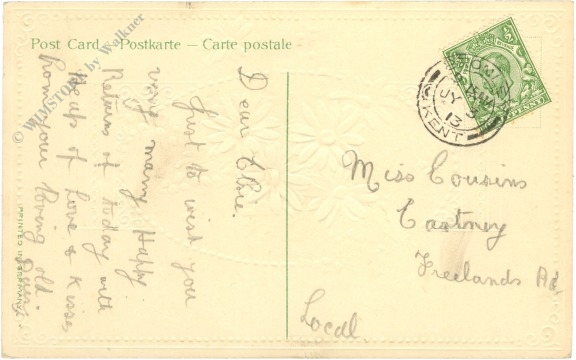 Post Card – Postkarte – Carte postale
Dear Elsie.
Just to wish you
very many Happy
Returns of today with
Heaps of Love & Kisses
from your loving old
Miss Cousins
Eastney
Freelands Rd.
Local.
KENT
JY
13
PENNY
PRINTED IN GERMANY
© WHISTORY by Walkner